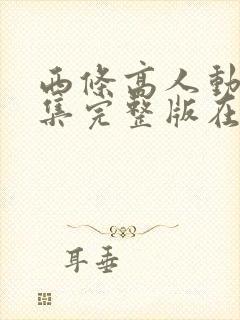 西條高人動
集完整版在
耳垂